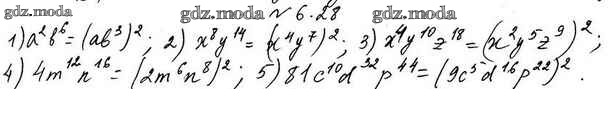 gdz.moda gdz.moda № 6.28 gdz.moda
1) a²b⁶ = (ab³)²; 2) x⁸y¹⁴ = (x⁴y⁷)²; 3) x⁴y¹⁰z¹⁸ = (x²y⁵z⁹)²;
4) 4m¹²n¹⁶ = (2m⁶n⁸)²; 5) 81c¹⁰d³²p⁴⁴ = (9c⁵d¹⁶p²²)².